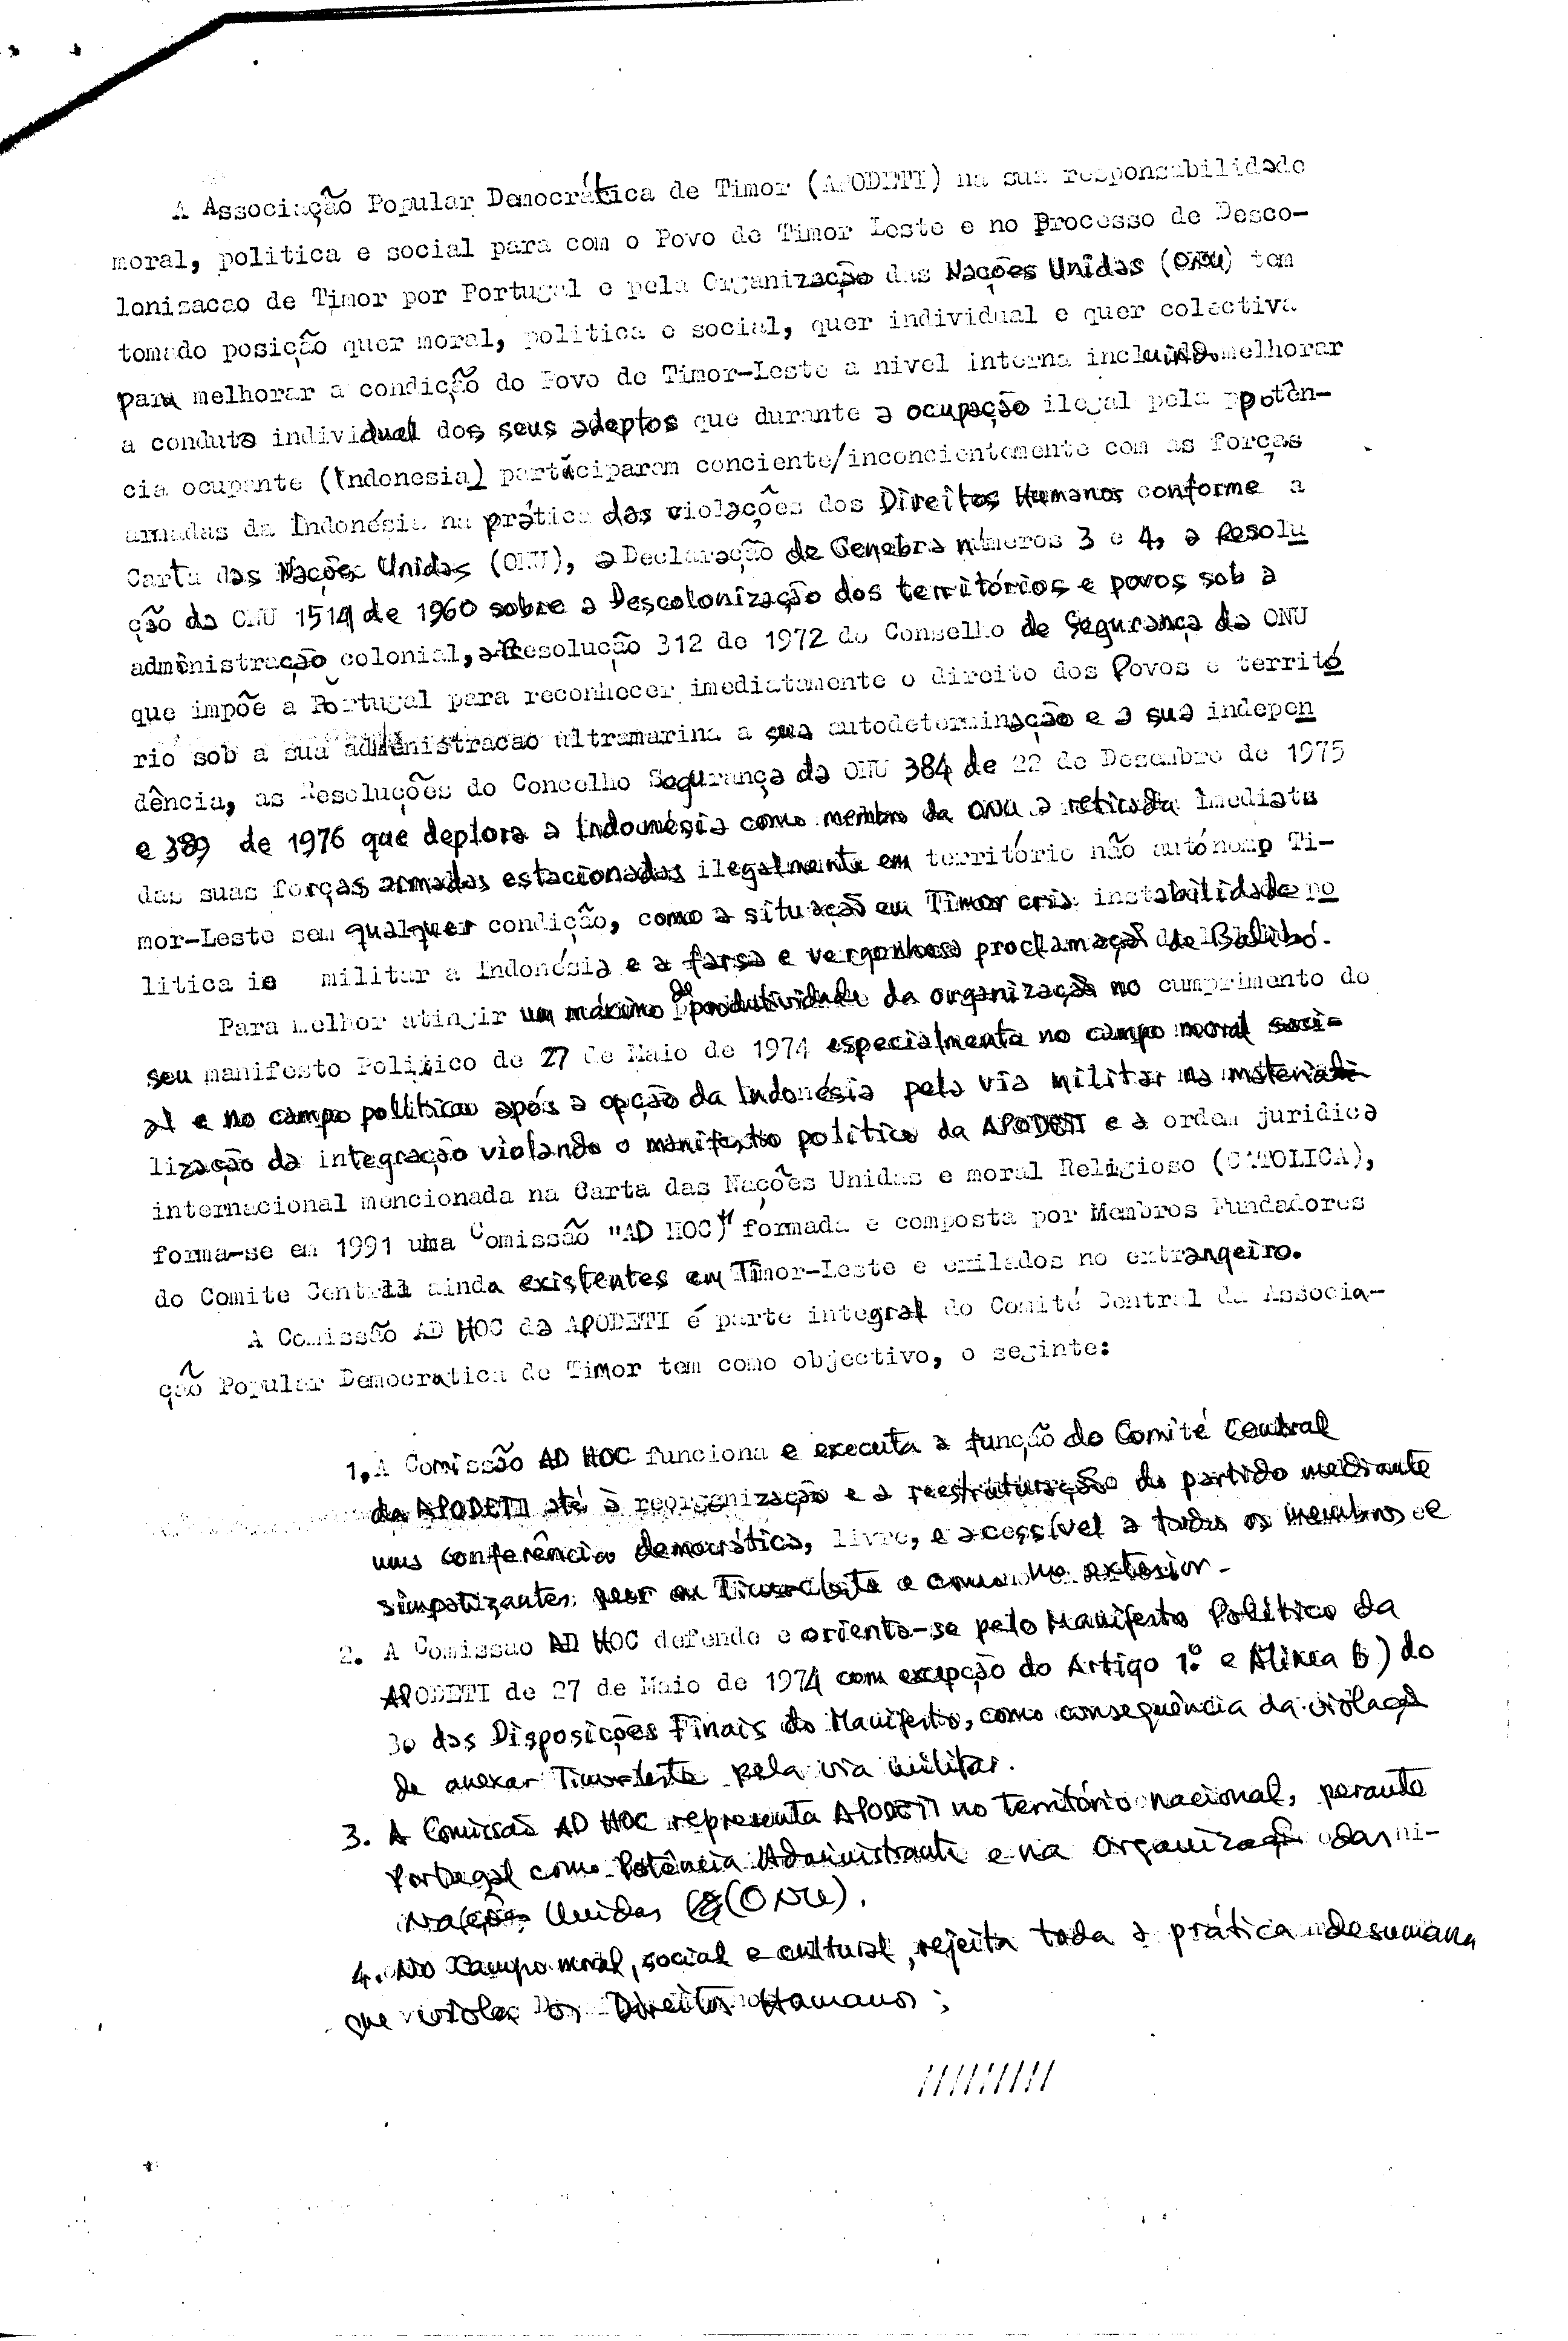 A Associação Popular Democrática de Timor (APODETI) na sua responsabilidade
moral, politica e social para com o Povo de Timor Leste e no Processo de Desco-
lonisacao de Timor por Portugal e pela Organização das Nações Unidas (ONU) tem
tomado posição quer moral, politica e social, quer individual e quer colectiva
para melhorar a condição do Povo de Timor-Leste a nivel interna incluindo melhorar
a conduta individual dos seus adeptos que durante a ocupação ilegal pela ppotên-
cia ocupante (Indonesia) participaram conciente/inconcientemente com as forças
armadas da Indonésia na prática das violações dos Direitos Humanos conforme a
Carta das Nações Unidas (ONU), a Declaração de Genebra números 3 e 4, a Resolu
ção da ONU 1514 de 1960 sobre a Descolonização dos territórios e povos sob a
administração colonial, a Resolução 312 de 1972 do Conselho de Segurança da ONU
que impõe a Portugal para reconhecer imediatamente o direito dos Povos e territó
rio sob a sua administracao ultramarina a sua autodeterminação e a sua indepen
dência, as Resoluções do Concelho Segurança da ONU 384 de 22 de Desembro de 1975
e 389 de 1976 que deplora a Indonésia como membro da ONU a retirada imediata
das suas forças armadas estacionadas ilegalmente em território não autónomo Ti-
mor-Leste sem qualquer condição, como a situação em Timor cria instabilidade po
litica ie militar a Indonésia e a farsa e vergonhosa proclamação de Balibó.
Para melhor atingir um máximo de produtividade da organização no cumprimento do
seu manifesto Politico de 27 de Maio de 1974 especialmente no campo moral soci-
al e no campo politico após a opção da Indonésia pela via militar na materiali
lização da integração violando o manifesto politico da APODETI e a ordem juridica
internacional mencionada na Carta das Nações Unidas e moral Religioso (CATOLICA),
forma-se em 1991 uma Comissão "AD HOC" formada e composta por Membros Fundadores
do Comite Central ainda existentes em Timor-Leste e exilados no extrangeiro.
A Comissão AD HOC da APODETI é parte integral do Comité Central da Associa-
ção Popular Democratica de Timor tem como objectivo, o seginte:
1. A Comissão AD HOC funciona e executa a função do Comité Central
da APODETI até à reorganização e a reestruturação do partido mediante
uma conferência democrática, livre, e acessível a todos os membros e
simpatizantes quer em Timor-Leste e como no exterior.
2. A Comissao AD HOC defende e orienta-se pelo Manifesto Político da
APODETI de 27 de Maio de 1974 com excepção do Artigo 1.º e Alinea b) do
3o das Disposições Finais do Manifesto, como consequência da violação
de anexar Timor-Leste pela via militar.
3. A Comissão AD HOC representa APODETI no território nacional, perante
Portugal como Potência Administrante e na Organização das
Nações Unidas (ONU).
4. No Campo moral, social e cultural, rejeita toda a prática desumana
que viola os Direitos Humanos;
/////////